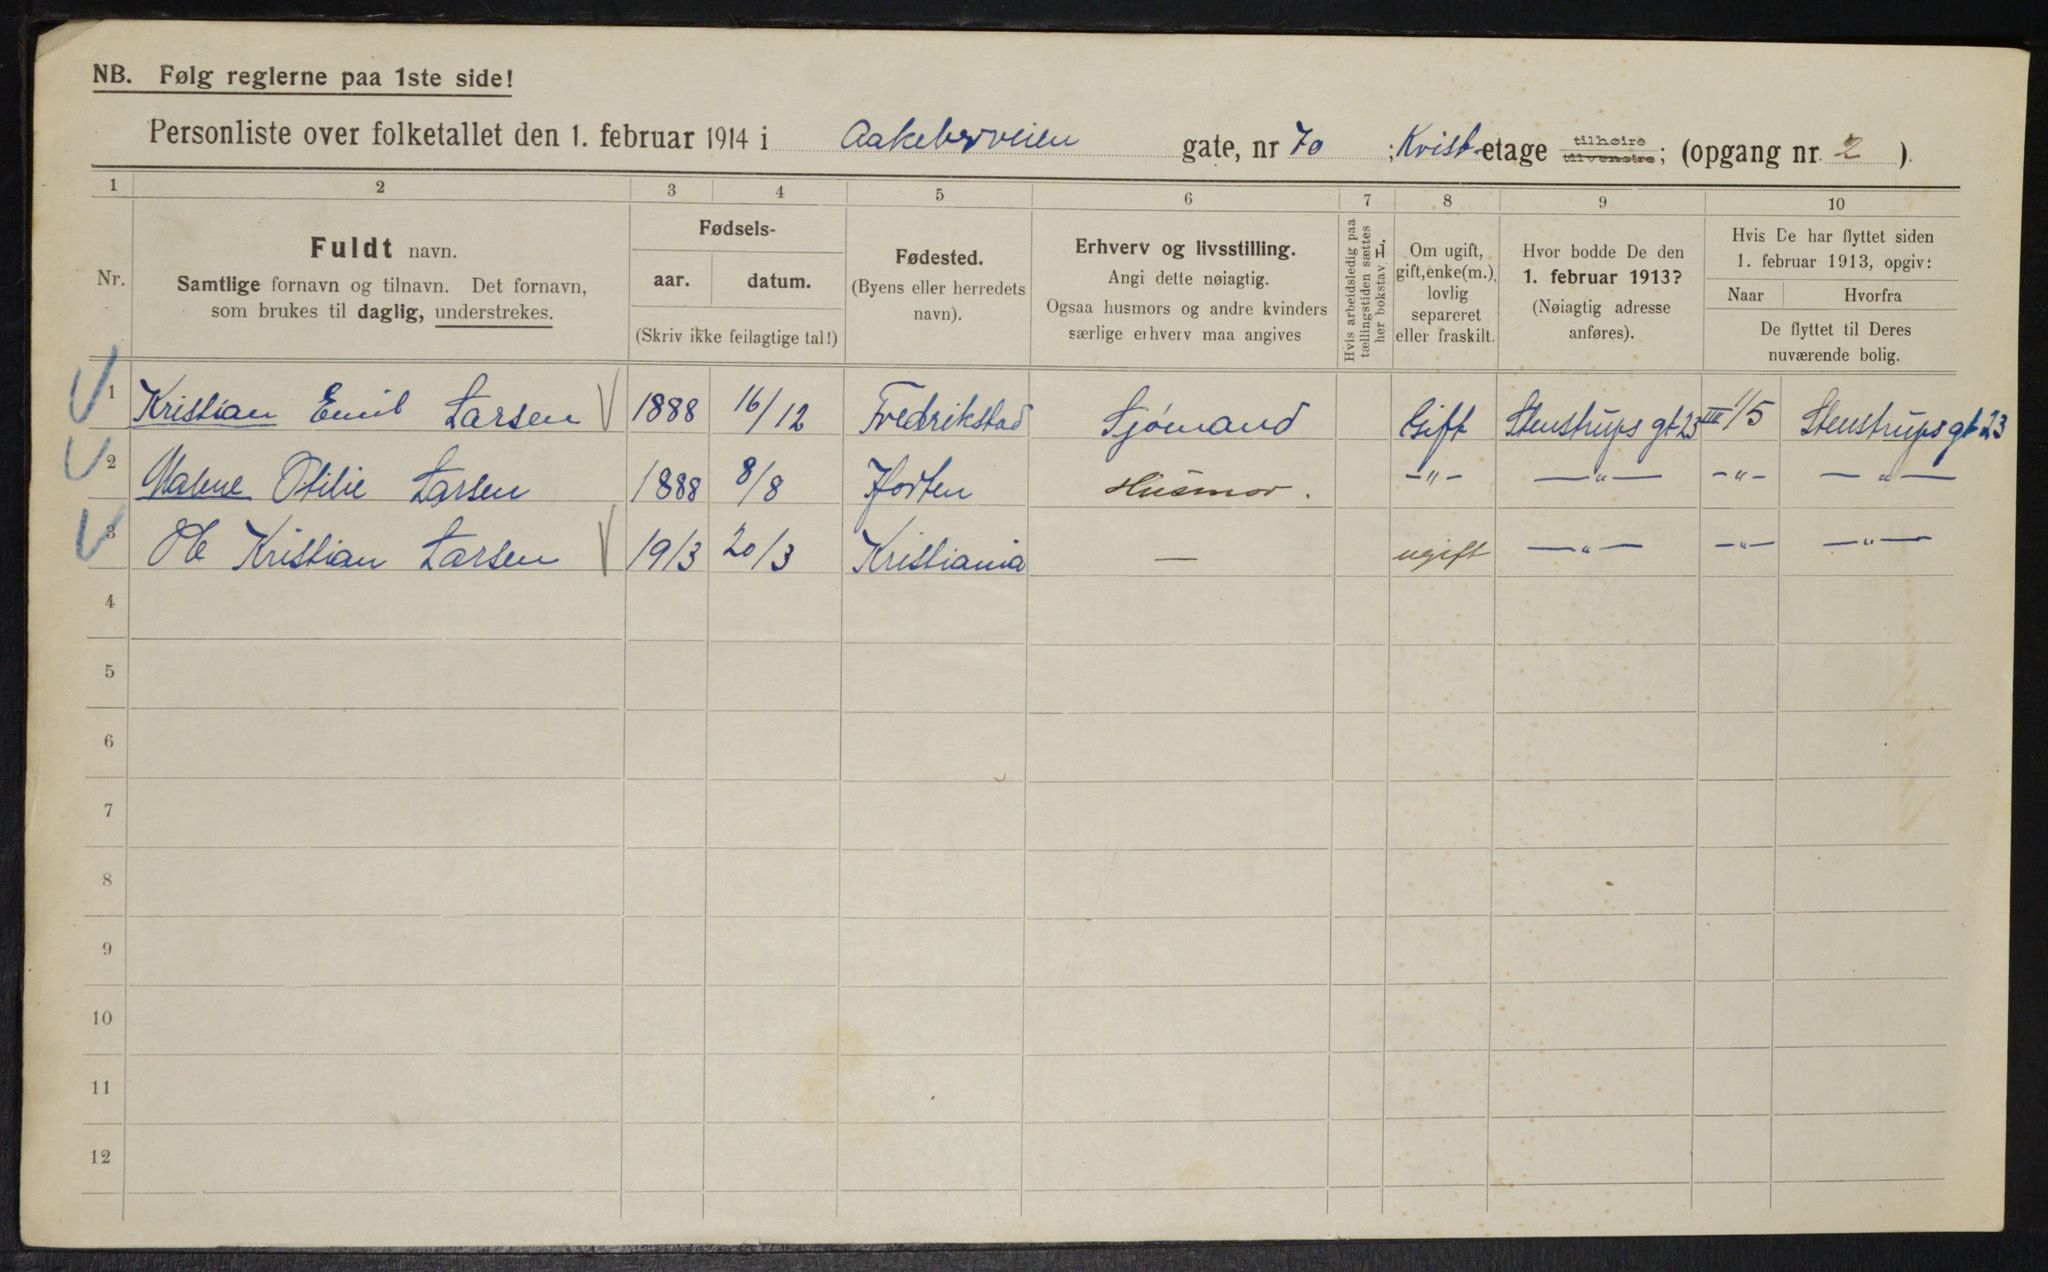 NB. Følg reglerne paa 1ste side!
Personliste over folketallet den 1. februar 1914 i Aakeberveien gate, nr 70 ; Kvist-etage tilhøire tilvenstre; (opgang nr. 2 ).
1 2 3 4 5 6 7 8 9 10
Nr.
Fuldt navn.
Samtlige fornavn og tilnavn. Det fornavn,
som brukes til daglig, understrekes.
Fødsels-
aar. datum.
(Skriv ikke feilagtige tal!)
Fødested.
(Byens eller herredets
navn).
Erhverv og livsstilling.
Angi dette nøiagtig.
Ogsaa husmors og andre kvinders
særlige erhverv maa angives
Hvis arbeidsledig paa
tællingstiden sættes
her bokstav L.
Om ugift,
gift, enke(m.),
lovlig
separeret
eller fraskilt.
Hvor bodde De den
1. februar 1913?
(Nøiagtig adresse
anføres).
Hvis De har flyttet siden
1. februar 1913, opgiv:
Naar Hvorfra
De flyttet til Deres
nuværende bolig.
1 Kristian Emil Larsen 1888 16/12 Fredrikstad Sjömand Gift Stenstrups gt 23 III 1/5 Stenstrups gt 23
2 Malene Otilie Larsen 1888 8/8 Horten Husmor. —"— —"— —"— —"—
3 Ole Kristian Larsen 1913 20/3 Kristiania — ugift —"— —"— —"—
4
5
6
7
8
9
10
11
12